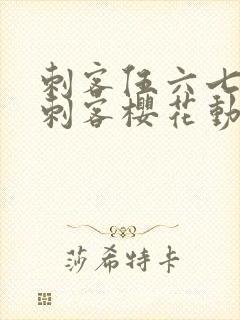 刺客伍六七
刺客樱花动
莎希特卡